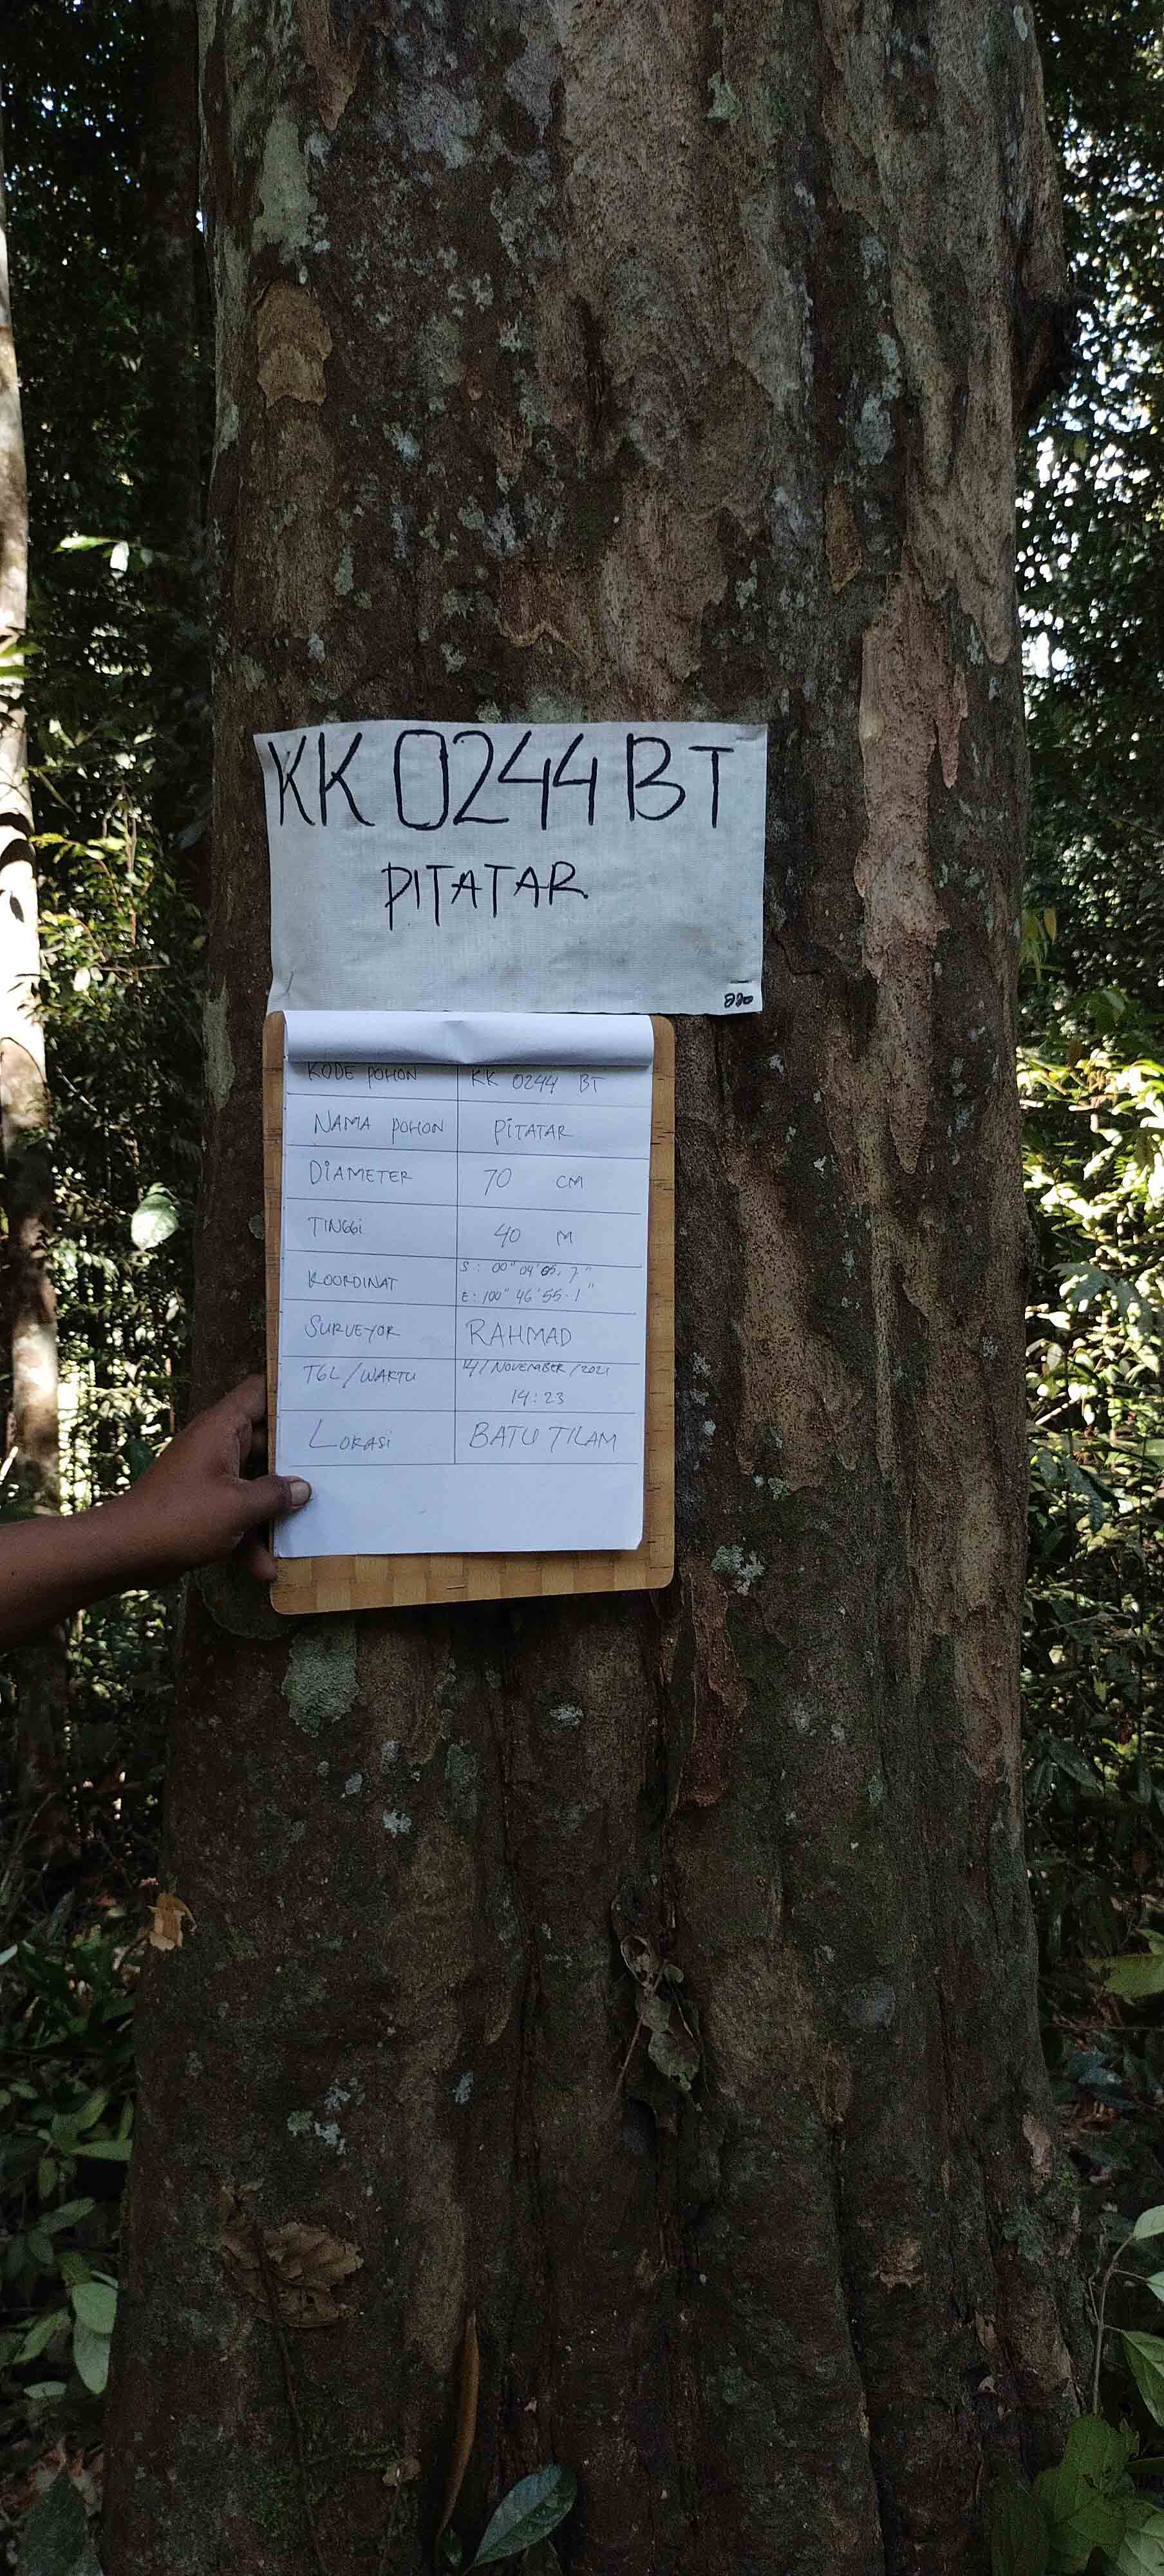 KK 0244 BT
PITATAR
220
KODE POHON KK 0244 BT
NAMA POHON PITATAR
DIAMETER 70 CM
TINGGI 40 M
KOORDINAT S : 00" 04' 05, 7"
E : 100" 46' 55. 1"
SURVEYOR RAHMAD
TGL/WAKTU 14/NOVEMBER/2021
14:23
LOKASI BATU TILAM